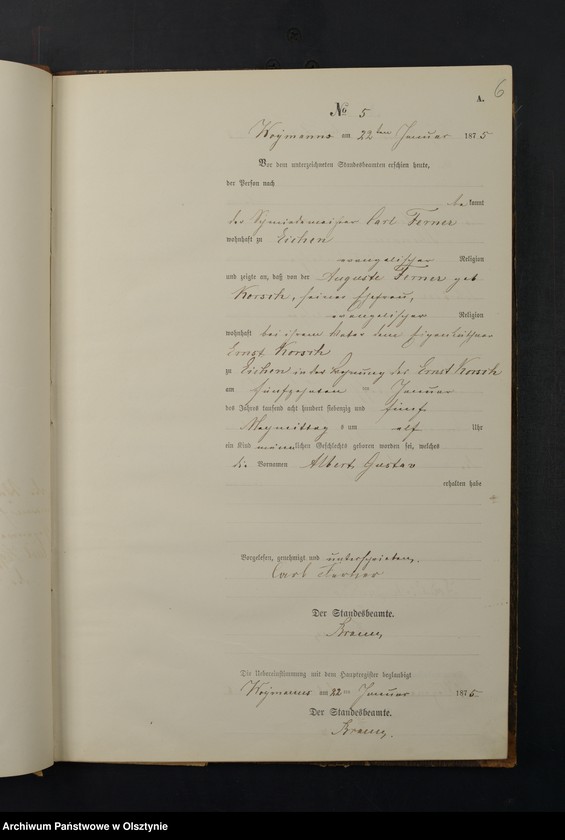 6
A.
No 5
Woymanns am 22ten Januar 1875
Vor dem unterzeichneten Standesbeamten erschien heute,
der Person nach
bekannt
der Schmiedemeister Carl Ferner
wohnhaft zu Eichen
evangelischer Religion
und zeigte an, daß von der Auguste Ferner geb
Korsch, seiner Ehefrau,
evangelischer Religion
wohnhaft bei ihrem Vater dem Eigenkäthner
Ernst Korsch
zu Eichen in der Wohnung des Ernst Korsch
am fünfzehnten Januar
des Jahres tausend acht hundert siebenzig und fünf
Vormittags um elf Uhr
ein Kind männlichen Geschlechts geboren worden sei, welches
die Vornamen Albert Gustav
erhalten habe
Vorgelesen, genehmigt und unterschrieben.
Carl Ferner
Der Standesbeamte.
Die Uebereinstimmung mit dem Hauptregister beglaubigt
Woymanns am 22ten Januar 1875
Der Standesbeamte.
Archiwum Państwowe w Olsztynie